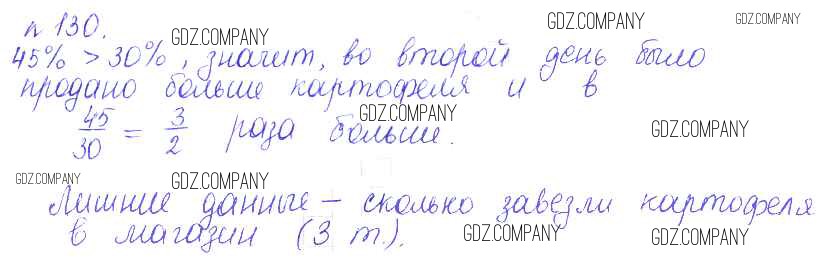 n 130.
GDZ.COMPANY GDZ.COMPANY GDZ.COMPANY
45% > 30%, значит, во второй день было
продано больше картофеля и в
GDZ.COMPANY
45/30 = 3/2 раза больше.
GDZ.COMPANY
GDZ.COMPANY GDZ.COMPANY
Лишние данные – сколько завезли картофеля
в магазин (3 т).
GDZ.COMPANY GDZ.COMPANY